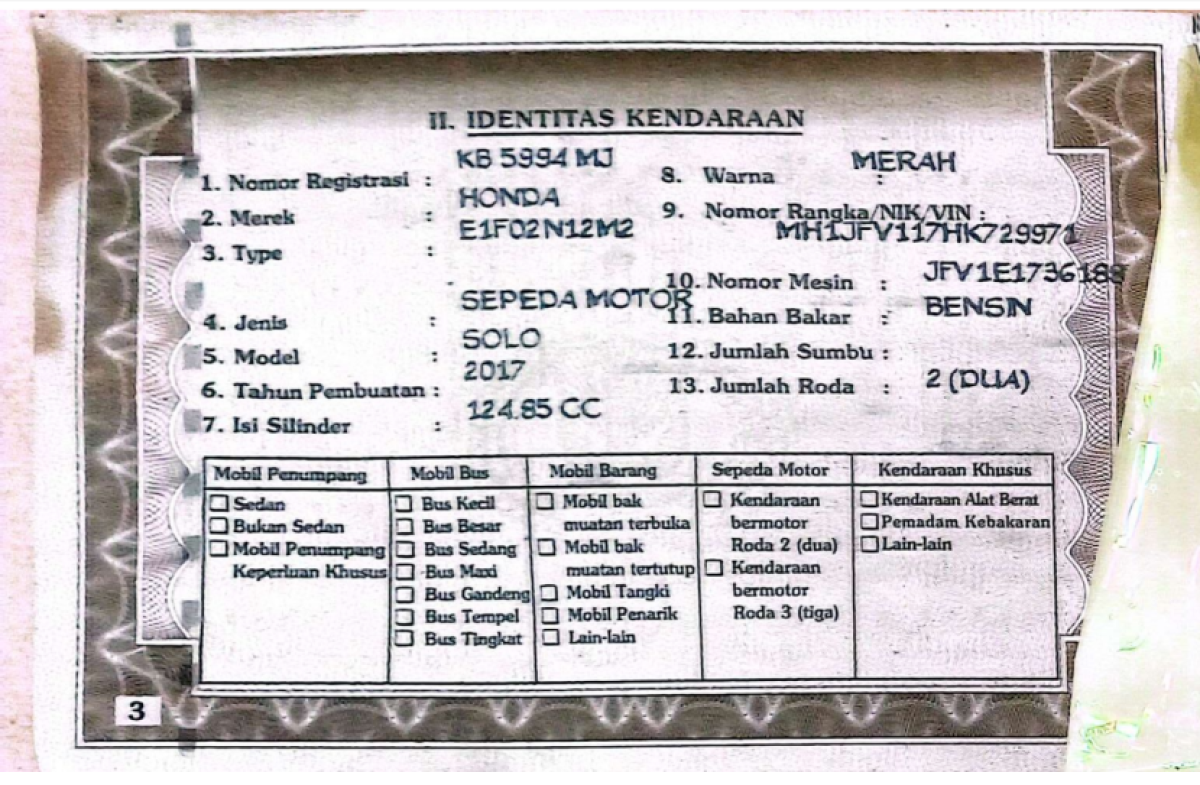 II. IDENTITAS KENDARAAN
1. Nomor Registrasi : KB 5994 MJ
2. Merek : HONDA
3. Type : E1F02N12M2
4. Jenis : SEPEDA MOTOR
5. Model : SOLO
6. Tahun Pembuatan : 2017
7. Isi Silinder : 124.85 CC
8. Warna : MERAH
9. Nomor Rangka/NIK/VIN :
MH1JFV117HK729971
10. Nomor Mesin : JFV1E1736188
11. Bahan Bakar : BENSIN
12. Jumlah Sumbu :
13. Jumlah Roda : 2 (DUA)
Mobil Penumpang
Sedan
Bukan Sedan
Mobil Penumpang
Keperluan Khusus
Mobil Bus
Bus Kecil
Bus Besar
Bus Sedang
Bus Maxi
Bus Gandeng
Bus Tempel
Bus Tingkat
Mobil Barang
Mobil bak
muatan terbuka
Mobil bak
muatan tertutup
Mobil Tangki
Mobil Penarik
Lain-lain
Sepeda Motor
Kendaraan
bermotor
Roda 2 (dua)
Kendaraan
bermotor
Roda 3 (tiga)
Kendaraan Khusus
Kendaraan Alat Berat
Pemadam Kebakaran
Lain-lain
3